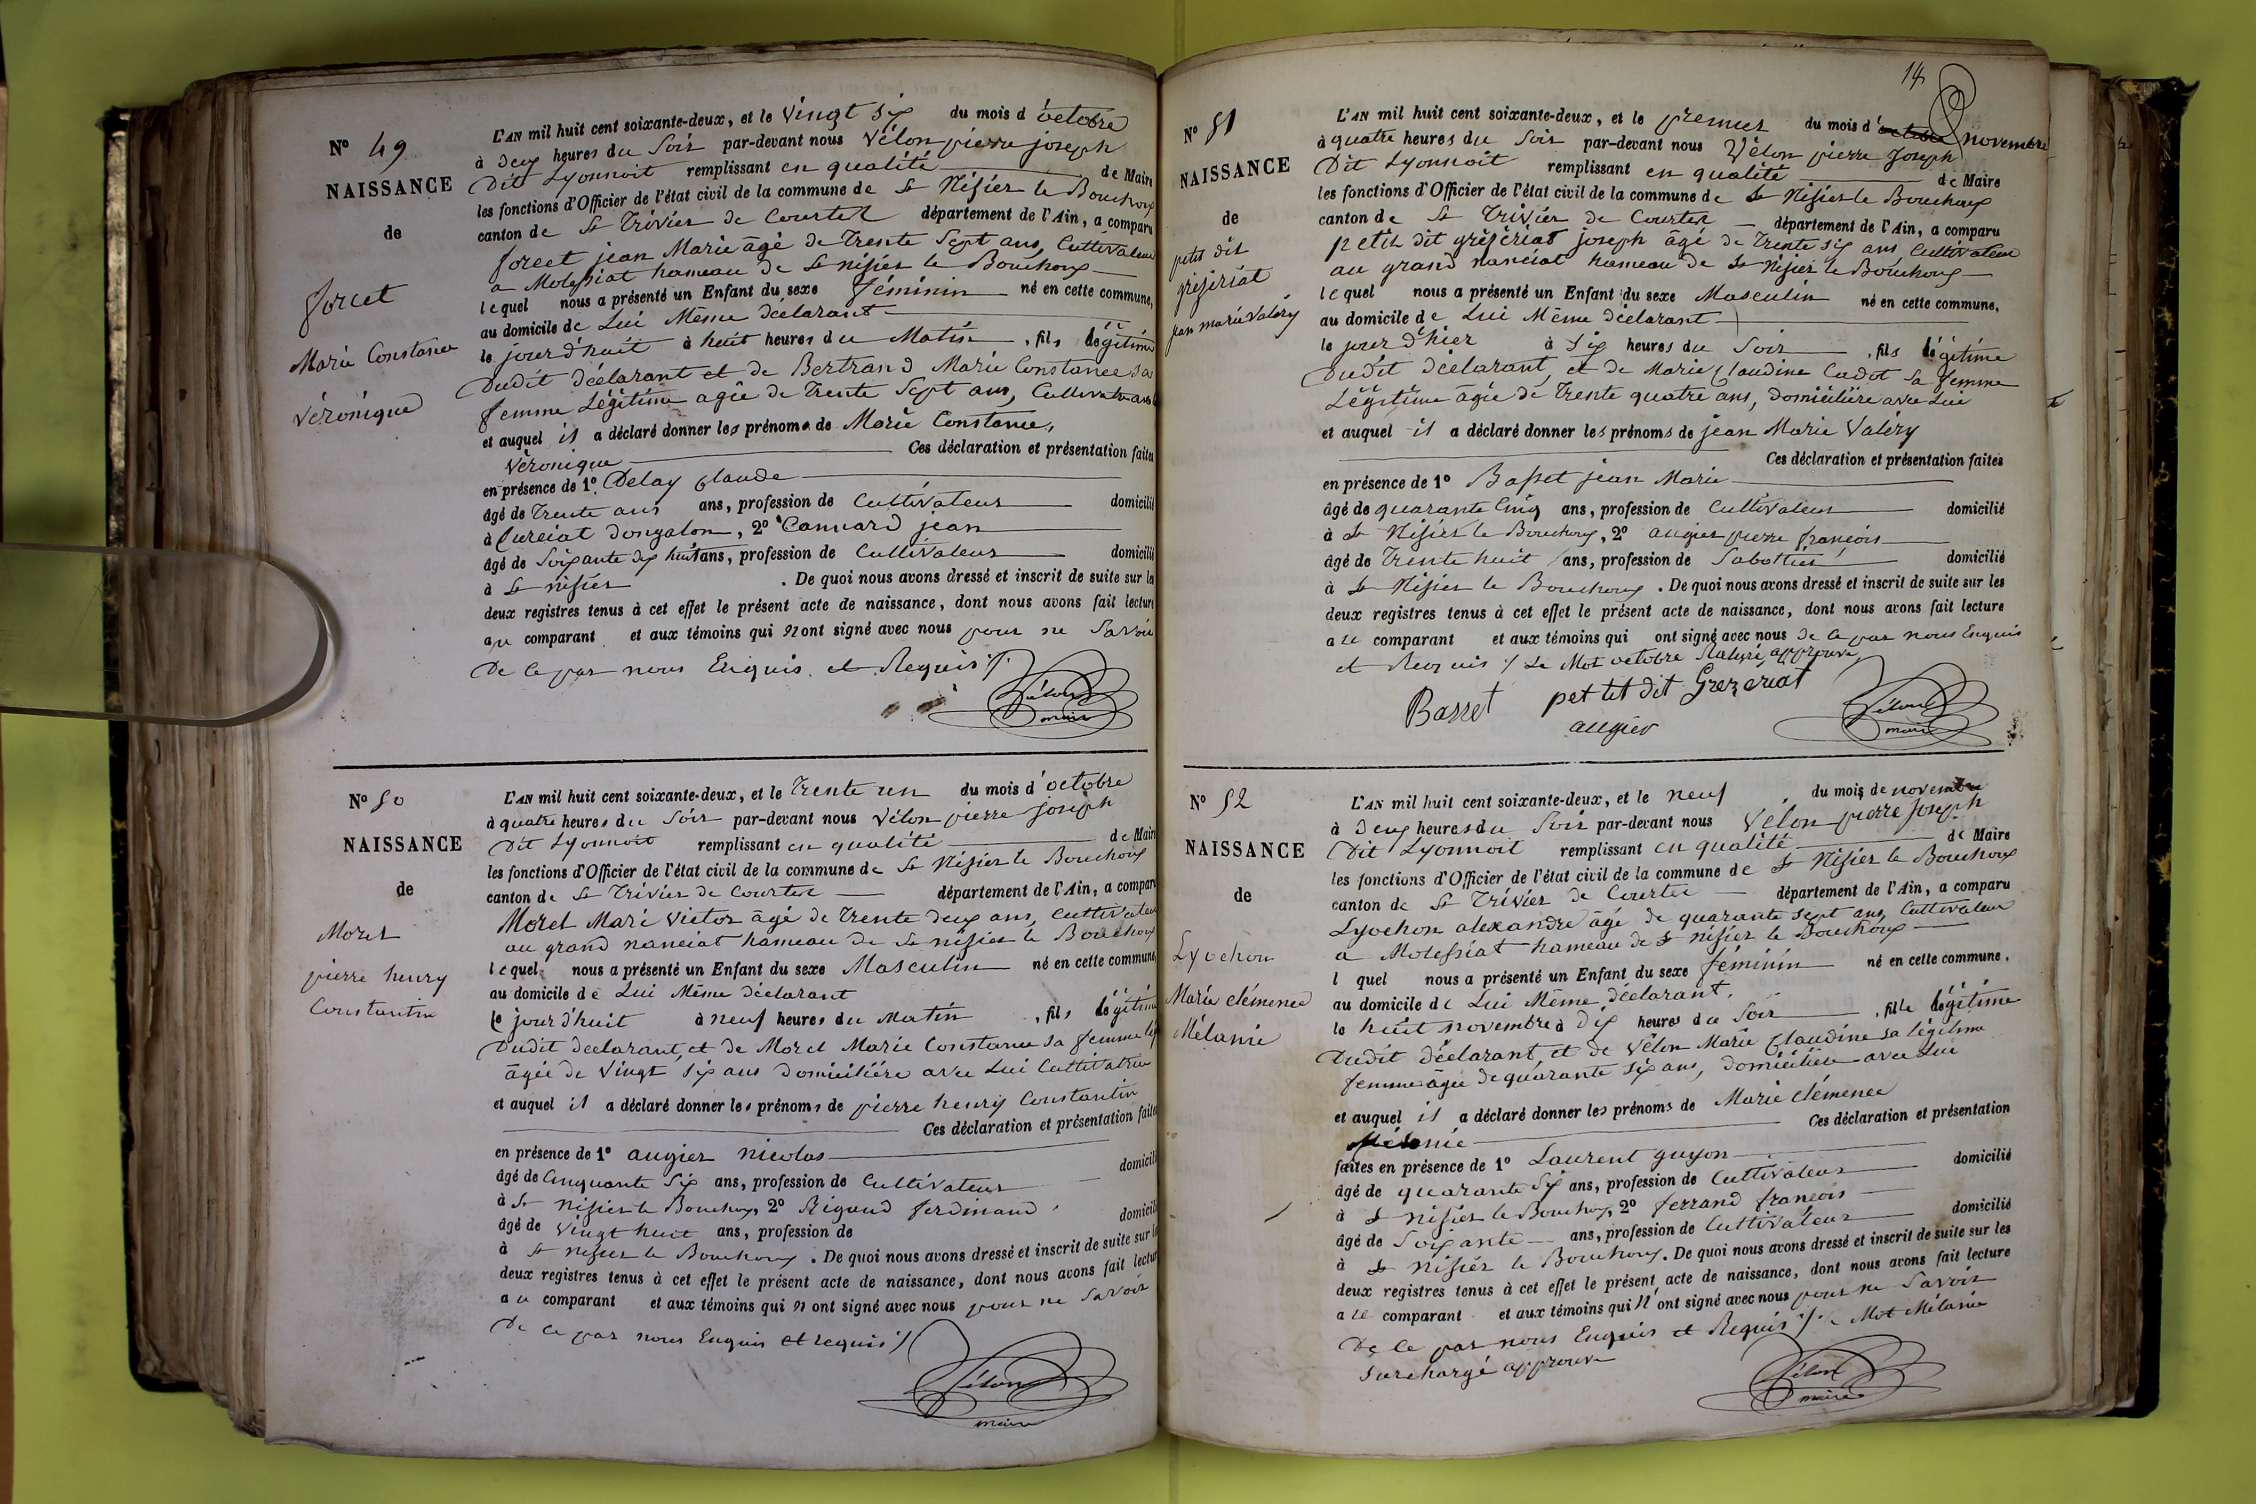 N° 49
NAISSANCE
de
forest
Marie Constance
Véronique
L'AN mil huit cent soixante-deux, et le Vingt Six du mois d'octobre
à Deux heures du Soir par-devant nous Vélon pierre joseph
Dit Lyonnoit remplissant en qualité de Maire
les fonctions d'Officier de l'état civil de la commune de St Nisier le Bouchoux
canton de St Trivier de Courtes département de l'Ain, a comparu
forest jean Marie âgé de Trente Sept ans, Cultivateur
a Molessiat hameau de St nisier le Bouchoux
lequel nous a présenté un Enfant du sexe féminin né en cette commune,
au domicile de Lui Même déclarant
le jourd'huit à huit heures du Matin , fils légitime
Dudit déclarant et de Bertrand Marie Constance Sa
femme Légitime agée de Trente Sept ans, Cultivatrice
et auquel il a déclaré donner les prénoms de Marie Constance,
Véronique Ces déclaration et présentation faites
en présence de 1° Delay Claude
âgé de Trente ans ans, profession de Cultivateur domicilié
à Curciat dongalon, 2° Cannard jean
âgé de Soixante dix huit ans, profession de Cultivateur domicilié
à St nisier . De quoi nous avons dressé et inscrit de suite sur les
deux registres tenus à cet effet le présent acte de naissance, dont nous avons fait lecture
au comparant et aux témoins qui n'ont signé avec nous pour ne Savoir
De ce par nous Enquis et Requis ./.
Vélon
maire
N° 50
NAISSANCE
de
Morel
pierre henry
Constantin
L'AN mil huit cent soixante-deux, et le Trente un du mois d'octobre
à quatre heures du Soir par-devant nous Vélon pierre joseph
Dit Lyonnoit remplissant en qualité de Maire
les fonctions d'Officier de l'état civil de la commune de St Nisier le Bouchoux
canton de St Trivier de Courtes département de l'Ain, a comparu
Morel Mari Victor âgé de Trente deux ans, cultivateur
au grand nanciat hameau de St nisier le Bouchoux
lequel nous a présenté un Enfant du sexe Masculin né en cette commune,
au domicile de Lui Même déclarant
le jourd'huit à neuf heures du Matin , fils légitime
Dudit declarant, et de Morel Marie Constance sa femme
âgée de Vingt Six ans domiciliére avec Lui Cultivatrice
et auquel il a déclaré donner les prénoms de pierre henry Constantin
Ces déclaration et présentation faites
en présence de 1° augier nicolas
âgé de Cinquante Six ans, profession de Cultivateur domicilié
à St Nisier le Bouchoux, 2° Rigaud ferdinand domicilié
âgé de Vingt huit ans, profession de
à St nisier le Bouchoux . De quoi nous avons dressé et inscrit de suite sur les
deux registres tenus à cet effet le présent acte de naissance, dont nous avons fait lecture
au comparant et aux témoins qui n'ont signé avec nous pour ne Savoir
De ce par nous Enquis et requis ./
Vélon
maire
14
N° 51
NAISSANCE
de
petit dit
gréjériat
jean marie Valéry
L'AN mil huit cent soixante-deux, et le premier du mois d'octobre novembre
à quatre heures du Soir par-devant nous Vélon pierre Joseph
Dit Lyonnoit remplissant en qualité de Maire
les fonctions d'Officier de l'état civil de la commune de St Nisier le Bouchoux
canton de St Trivier de Courtes département de l'Ain, a comparu
petit dit gréjériat joseph âgé de Trente Six ans Cultivateur
au grand nanciat hameau de St Nisier le Bouchoux
lequel nous a présenté un Enfant du sexe Masculin né en cette commune,
au domicile de Lui Même déclarant
le jour d'hier à Six heures du Soir , fils légitime
Dudit déclarant, et de Marie Claudine Cadot Sa femme
Légitime âgée de Trente quatre ans, domiciliére avec Lui
et auquel il a déclaré donner les prénoms de jean Marie Valéry
Ces déclaration et présentation faites
en présence de 1° Basset jean Marie
âgé de quarante Cinq ans, profession de Cultivateur domicilié
à St Nisier le Bouchoux, 2° augier pierre françois
âgé de Trente huit ans, profession de Sabottier domicilié
à St Nisier le Bouchoux . De quoi nous avons dressé et inscrit de suite sur les
deux registres tenus à cet effet le présent acte de naissance, dont nous avons fait lecture
au comparant et aux témoins qui ont signé avec nous de ce par nous Enquis
et Requis ./ Le Mot octobre Raturé, approuvé
Basset petit dit Grezeriat
augier
Vélon
maire
N° 52
NAISSANCE
de
Lyochon
Marie clémence
Mélanie
L'AN mil huit cent soixante-deux, et le neuf du mois de novembre
à Deux heures du Soir par-devant nous Vélon pierre Joseph
Dit Lyonnoit remplissant en qualité de Maire
les fonctions d'Officier de l'état civil de la commune de St Nisier le Bouchoux
canton de St Trivier de Courtes département de l'Ain, a comparu
Lyochon alexandre âgé de quarante sept ans, Cultivateur
a Molessiat hameau de St nisier le Bouchoux
l quel nous a présenté un Enfant du sexe féminin né en cette commune,
au domicile de Lui Même déclarant.
le huit novembre à Dix heures du Soir , fille légitime
Dudit déclarant, et de Vélon Marie Claudine sa légitime
femme âgée de quarante six ans, domiciliére avec Lui
et auquel il a déclaré donner les prénoms de Marie clémence
Mélanie Ces déclaration et présentation
faites en présence de 1° Laurent guyon domicilié
âgé de quarante Six ans, profession de Cultivateur
à St nisier le Bouchoux, 2° ferrand françois
âgé de Soixante ans, profession de Cultivateur domicilié
à St nisier le Bouchoux. De quoi nous avons dressé et inscrit de suite sur les
deux registres tenus à cet effet le présent acte de naissance, dont nous avons fait lecture
au comparant et aux témoins qui n'ont signé avec nous pour ne Savoir
De ce par nous Enquis et Requis ./. Mot Mélanie
surchargé approuvé
Vélon
maire